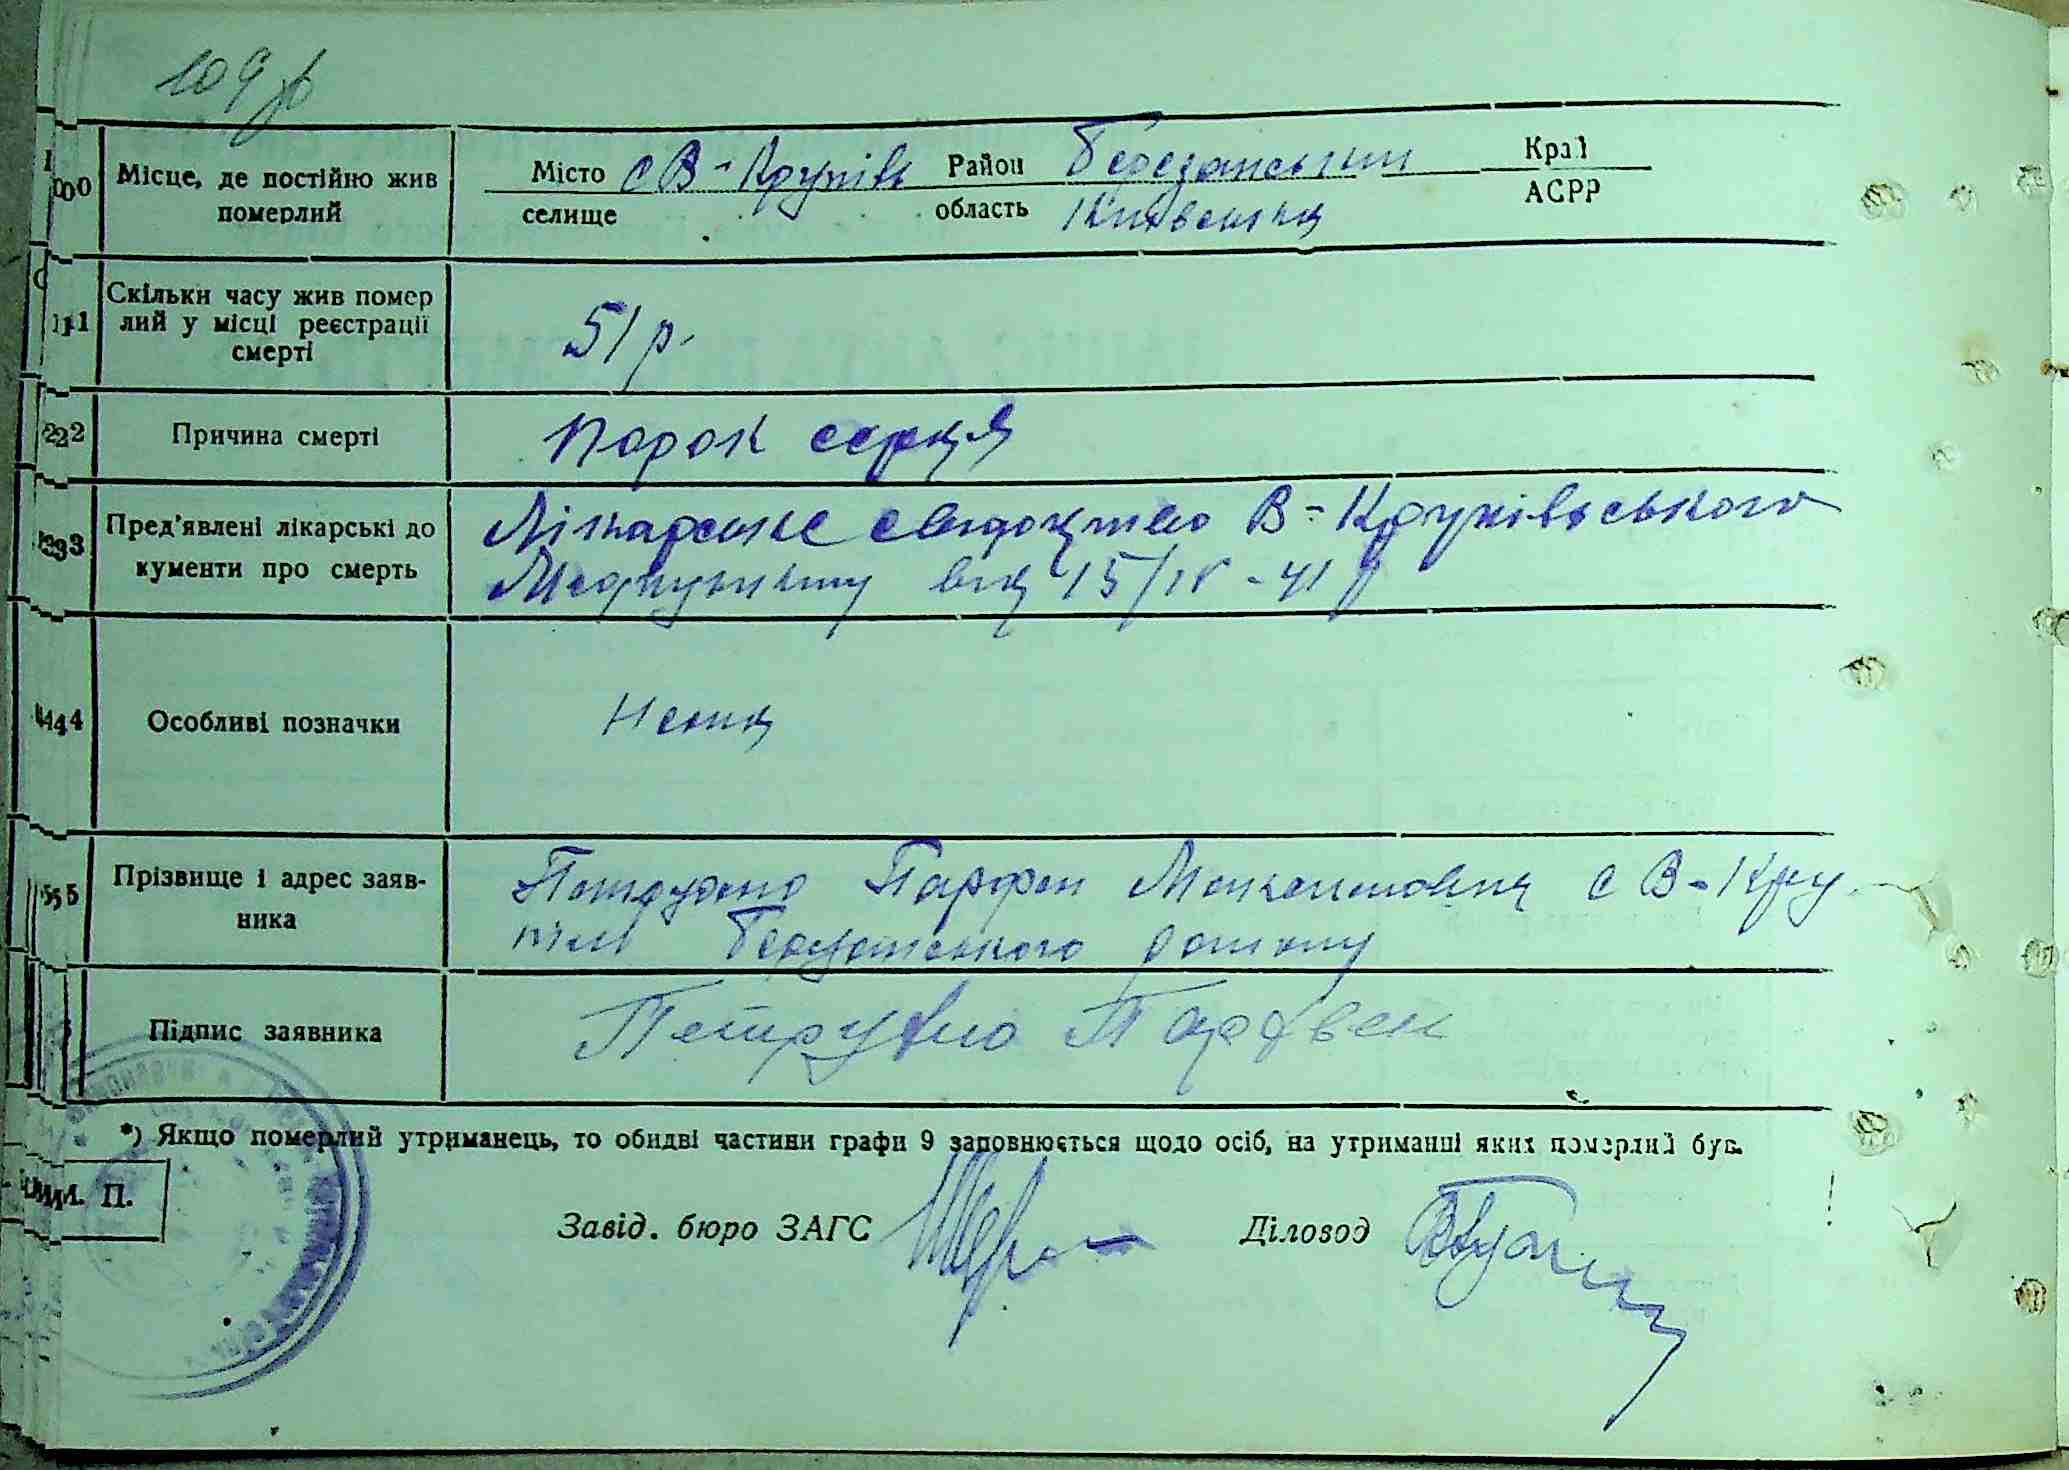 109
10 Місце, де постійно жив померлий Місто селище с В-Крупіль Район область Березанський Київська Край АСРР
11 Скільки часу жив помер лий у місці реєстрації смерті 51 р.
12 Причина смерті Порок серця
13 Пред'явлені лікарські до кументи про смерть Лікарське свидоцтво В-Крупільського
Медпункту від 15/IV-41 р
14 Особливі позначки Нема
15 Прізвище і адрес заяв-ника Парфен с В-Кру
піль Березанського району
Підпис заявника Парфвен
*) Якщо померлий утриманець, то обидві частини графи 9 заповнюється щодо осіб, на утриманні яких померлий був.
М. П.
Завід. бюро ЗАГС
Діловод